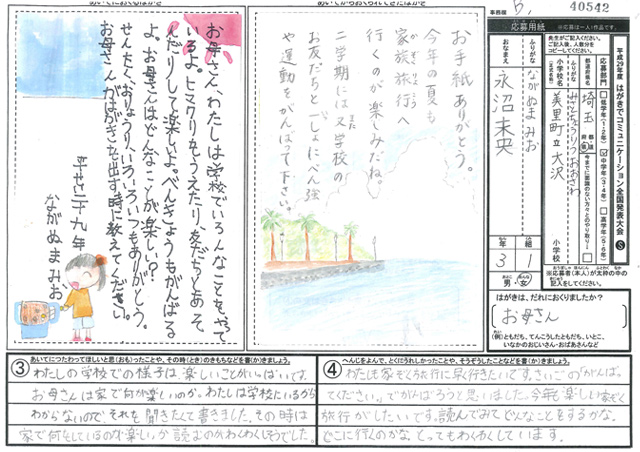 あいてにおくるはがき
あいてからおくられてきたはがき
お母さん、わたしは学校でいろんなことを、やって
いるよ。ヒマワリをうえたり、友だちとあそ
んだりして楽しいよ。べんきょうもがんばる
よ。お母さんはどんなことが楽しい?
せんたく、おりょうり、いろいろいつもありがとう。
お母さんがはがきを出す時に教えてください。
平成二十九年
ながぬまみお
お手紙ありがとう。
今年の夏も
家族旅行へ
行くのが楽しみだね。
二学期には又学校の
お友だちと一しょにべん強
や運動をがんばって下さい。
事務局
40542
応募用紙
※応募は一人1作品です。
先生がご記入ください。
ご記入後、人数分を
コピーしてください。
平成29年度 はがきでコミュニケーション全国発表大会
応募部門
低学年(1・2年)
中学年(3・4年)
高学年(5・6年)
都道府県名
埼玉
都道府県
小学校名
(正式名称)
ふりがな
みさとちょうりつおおさわ
美里町立大沢
小学校
ふりがな
ながぬまみお
おなまえ
永沼未央
年
3
組
1
男・女
※応募者(本人)が太枠の中を
記入をしてください。
はがきは、だれにおくりましたか?
お母さん
(例)ともだち、てんこうしたともだち、いとこ、
いなかのおじいさん・おばあさんなど
③
あいてにつたわってほしいと思(おも)ったことや、その時(とき)のきもちなどを書(か)きましょう。
わたしの学校での様子は楽しいことがいっぱいです。
お母さんは家で何が楽しいのか。わたしは学校にいるから
わからないので、それを聞きたくて書きました。その時は
家で何をしているのが楽しいか読むのがわくわくしそうでした。
④
へんじをよんで、とくにうれしかったことや、そうぞうしたことなどを書(か)きましょう。
わたしも家ぞくりょ行に早く行きたいです。さいごの「がんばっ
てください。」でがんばろうと思いました。今年も楽しい家ぞく
旅行がしたいです。読んでみてどんなことをするかな。
どこに行くのかな。とってもわくわくしています。